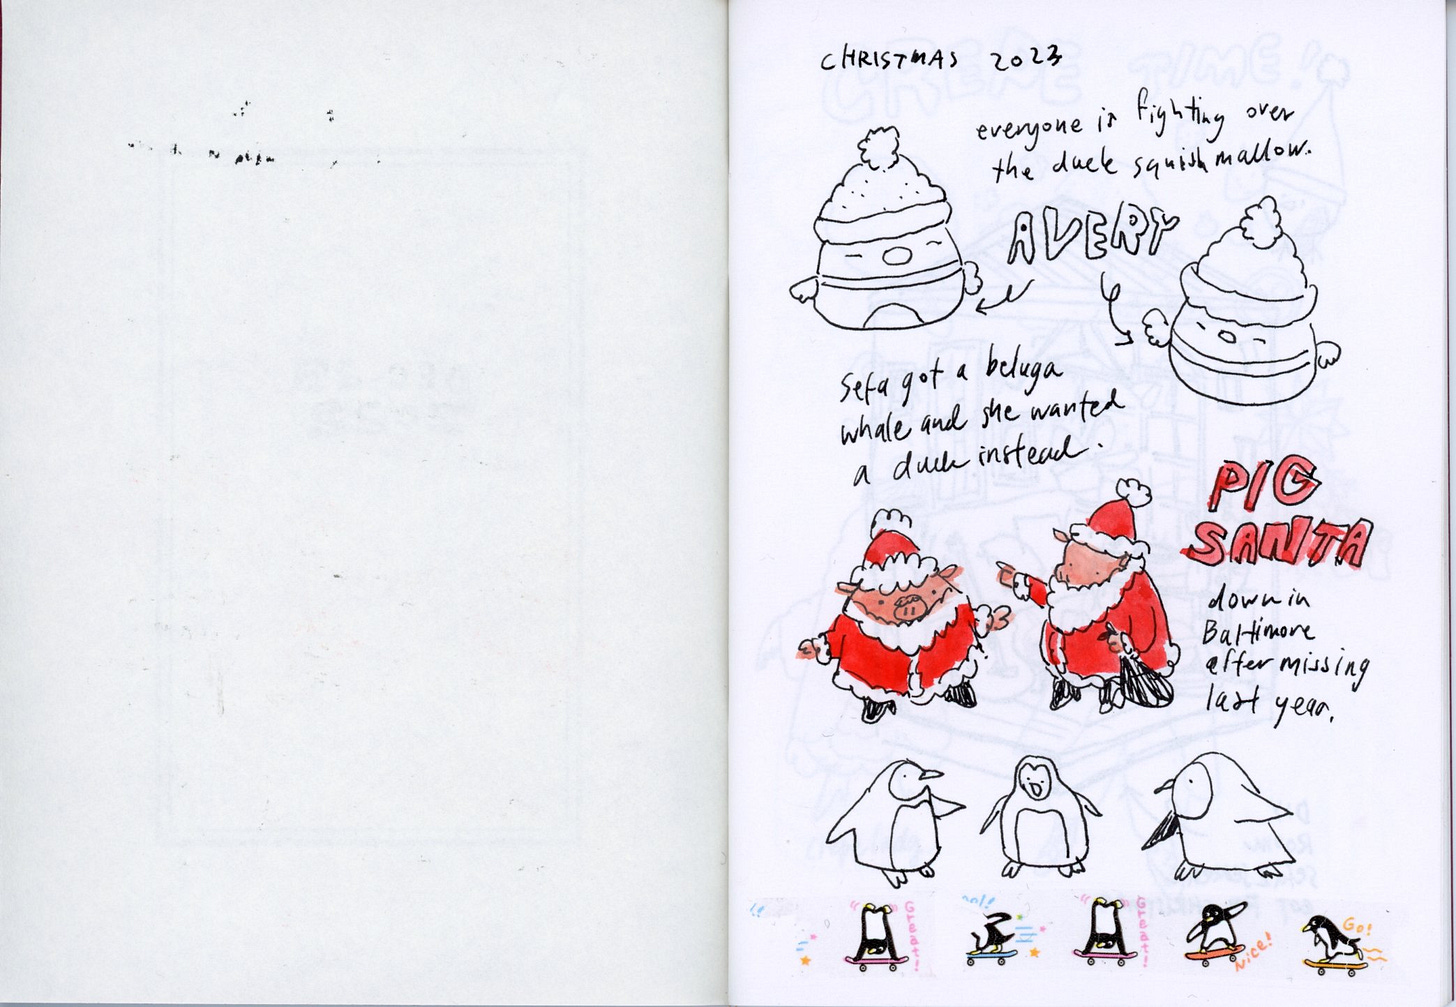 CHRISTMAS 2023
everyone is fighting over
the duck squishmallow.
AVERY
Sefa got a beluga
whale and she wanted
a duck instead.
PIG
SANTA
down in
Baltimore
after missing
last year.
Great!
Great!
Nice!
Go!